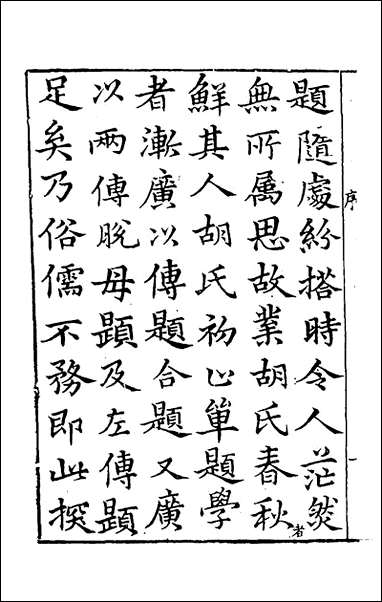 題隨處紛搭時令人茫然
無所屬思故業胡氏春秋
者
鮮其人胡氏初止單題學
者漸廣以傳題合題又廣
以兩傳脫母題及左傳題
足矣乃俗儒不務即此探
序
一